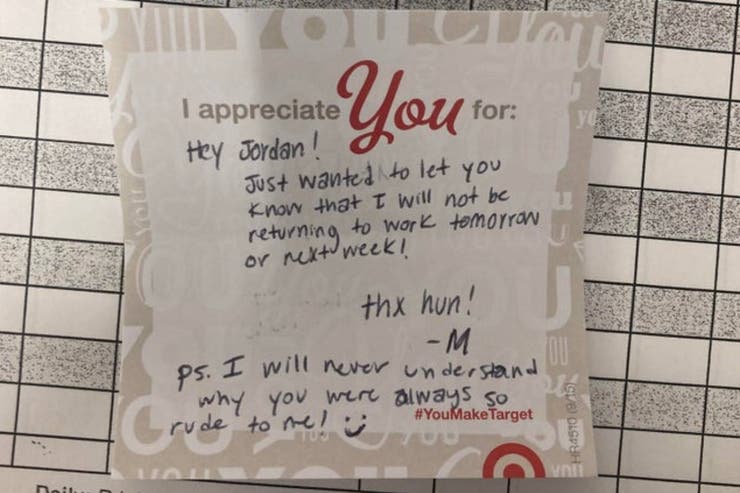 I appreciate You for:
Hey Jordan!
Just wanted to let you
know that I will not be
returning to work tomorrow
or next week!
thx hun!
-M
Ps. I will never understand
why you were always so
rude to me! :)
#YouMakeTarget
HR4510 (9/15)